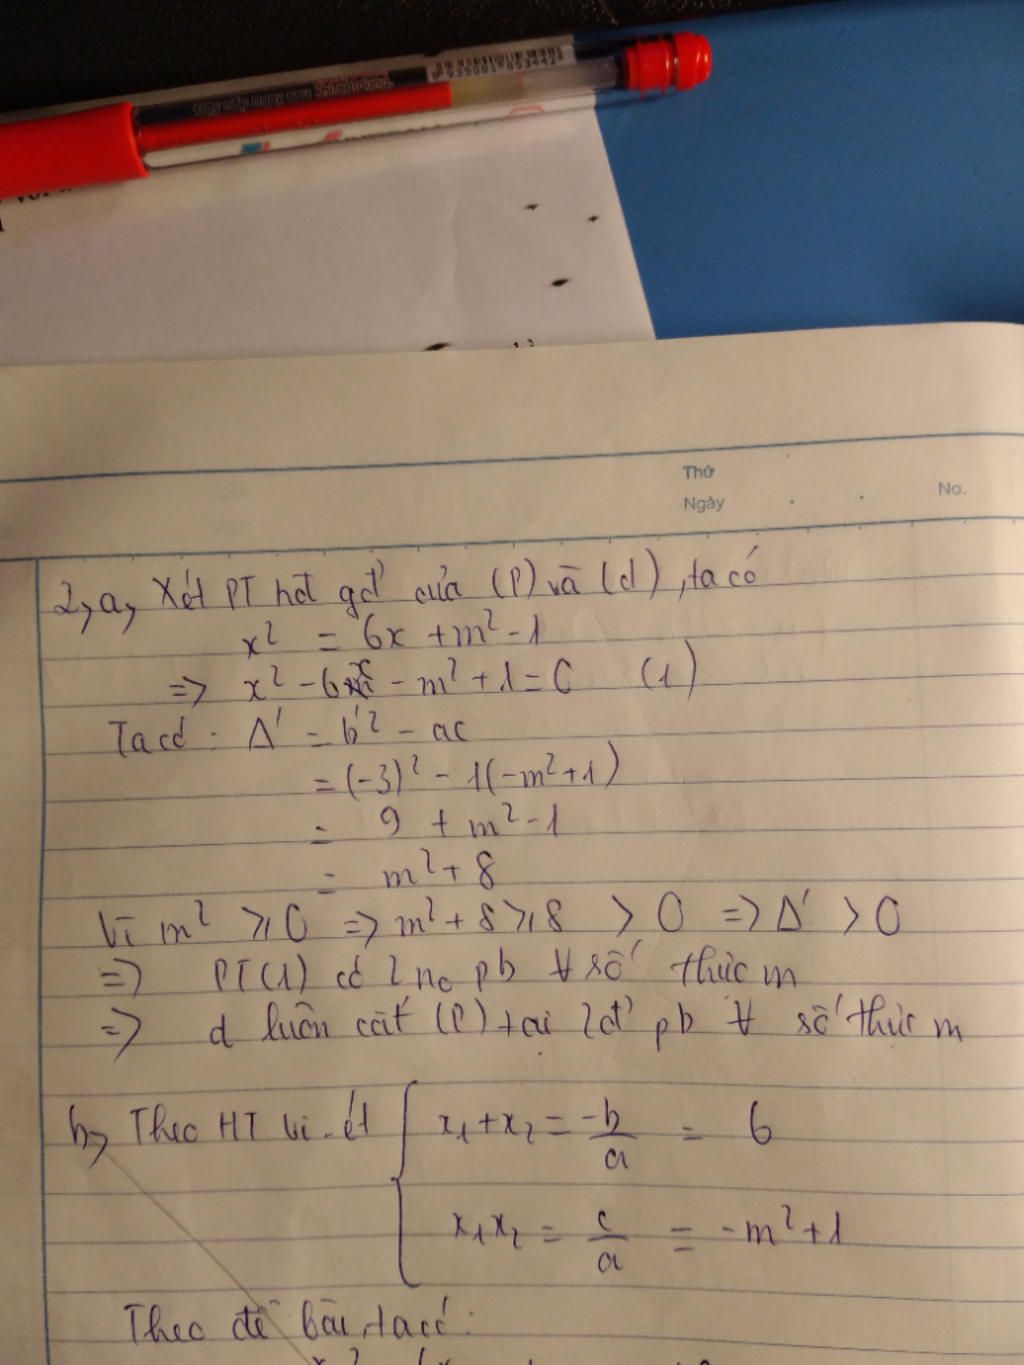 9 935001 853442
Thứ
Ngày
No.
2, a, Xét PT hđ gđ' của (P) và (d), ta có
x² = 6x + m² - 1
=> x² - 6x - m² + 1 = 0 (1)
Ta có : Δ' = b'² - ac
= (-3)² - 1(-m² + 1)
= 9 + m² - 1
= m² + 8
Vì m² ≥ 0 => m² + 8 ≥ 8 > 0 => Δ' > 0
=> PT (1) có 2 no pb ∀ số thực m
=> d luôn cắt (P) tại 2 đ' pb ∀ số thực m
b, Theo HT Vi-ét { x₁ + x₂ = -b/a = 6
x₁x₂ = c/a = -m² + 1
Theo đề bài, ta có :